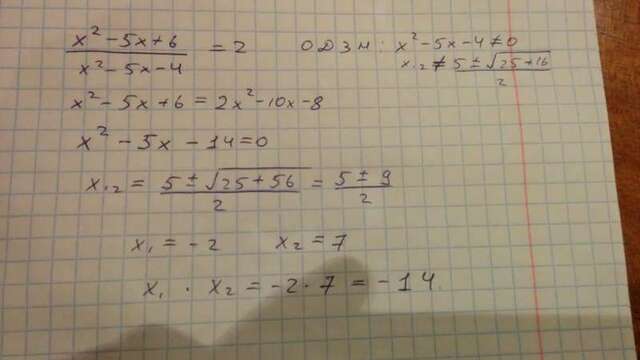 (x² - 5x + 6)/(x² - 5x - 4) = 2   ОДЗН: x² - 5x - 4 ≠ 0
x₁,₂ ≠ (5 ± √(25 + 16))/2
x² - 5x + 6 = 2x² - 10x - 8
x² - 5x - 14 = 0
x₁,₂ = (5 ± √(25 + 56))/2 = (5 ± 9)/2
x₁ = -2   x₂ = 7
x₁ · x₂ = -2 · 7 = -14